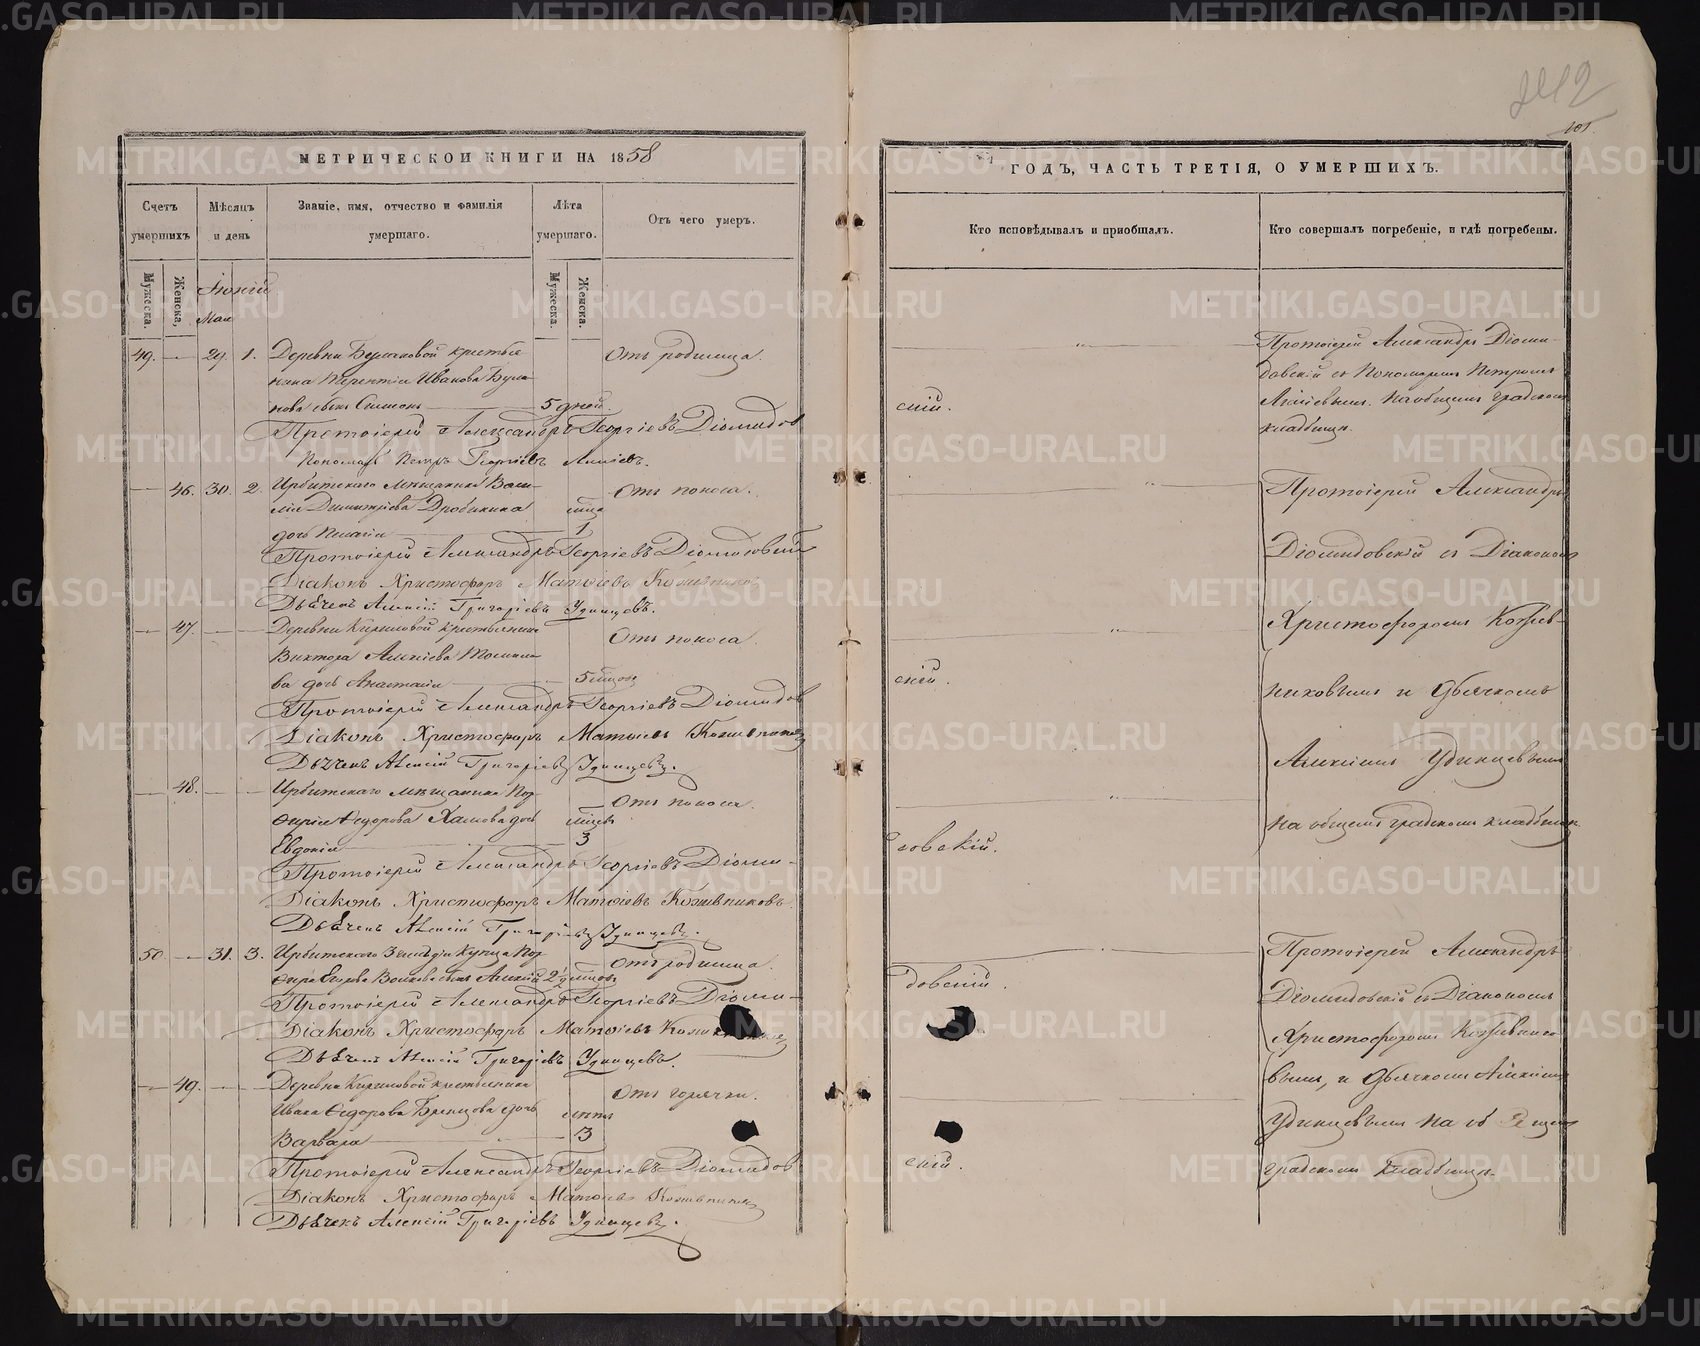 МЕТРИЧЕСКОЙ КНИГИ НА 1858
Счетъ умершихъ
Мѣсяцъ и день
Званіе, имя, отчество и фамилія умершаго.
Лѣта умершаго.
Отъ чего умеръ.
Мужеска.
Женска.
Мужеска.
Женска.
Мая
49. 29. 1. Деревни крестья-
нина Терентія Иванова
сынъ Симеонъ 5 дней.
Отъ родимца.
Протоіерей Александръ Георгіевъ Діомидов
Пономарь Петръ Георгіевъ
46. 30. 2. Ирбитскаго мѣщанина Васи-
лія Димитріева Дробинина
дочь Пелагія 1
Отъ поноса.
Протоіерей Александръ Георгіевъ Діомидовскій
Діаконъ Христофоръ Матѳіевъ Кожевниковъ
Дьячекъ Алексій Григоріевъ Удинцевъ.
47. Деревни Кириловой крестьянина
Виктора Алексіева
ва дочь Анастасія 5
Отъ поноса.
Протоіерей Александръ Георгіевъ Діомидов
Діаконъ Христофоръ Матѳіевъ Кожевниковъ
Дьячекъ Алексій Григоріевъ Удинцевъ.
48. Ирбитскаго мѣщанина Пор-
фирія Ѳедорова дочь
Евдокія 3
Отъ поноса.
Протоіерей Александръ Георгіевъ Діоми-
Діаконъ Христофоръ Матѳіевъ Кожевниковъ
Дьячекъ Алексій Григоріевъ Удинцевъ.
50. 31. 3. Ирбитскаго 3 гильдіи Купца Пор-
фира Егорова сынъ Алексій 2½
Отъ родимца.
Протоіерей Александръ Георгіевъ Діоми-
Діаконъ Христофоръ Матѳіевъ
Дьячекъ Алексій Григоріевъ Удинцевъ.
49. Деревни Кириловой крестьянина
Ивана Ѳедорова дочь
Варвара 3
Отъ горячки.
Протоіерей Александръ Георгіевъ Діомидов
Діаконъ Христофоръ Матѳіевъ Кожевниковъ
Дьячекъ Алексій Григоріевъ Удинцевъ.
101.
ГОДЪ, ЧАСТЬ ТРЕТІЯ, О УМЕРШИХЪ.
Кто исповѣдывалъ и пріобщалъ.
Кто совершалъ погребеніе, и гдѣ погребены.
Протоіерей Александръ Діоми-
довскій съ Пономаремъ Петромъ
на общемъ градскомъ
кладбищѣ.
скій.
Протоіерей Александръ
Діомидовскій съ Діакономъ
Христофоромъ Кожев-
никовымъ и дьячкомъ
Алексіемъ Удинцевымъ
на общемъ градскомъ кладбищѣ
скій.
довскій.
Протоіерей Александръ
Діомидовскій съ Діакономъ
Христофоромъ Кожевнико-
вымъ, и дьячкомъ Алексіемъ
Удинцевымъ на общемъ
градскомъ кладбищѣ.
довскій.
скій.
METRIKI.GASO-URAL.RU